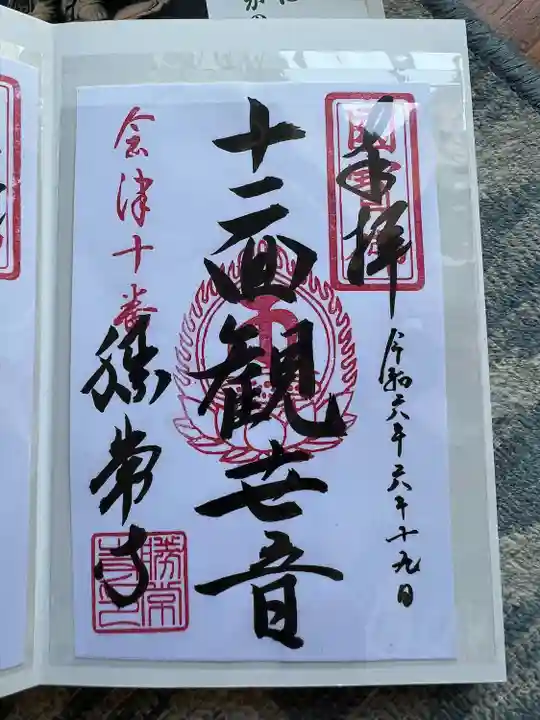 奉拝
令和六年六年十九日
十一面観世音
会津十番
勝常寺
勝常
寺印